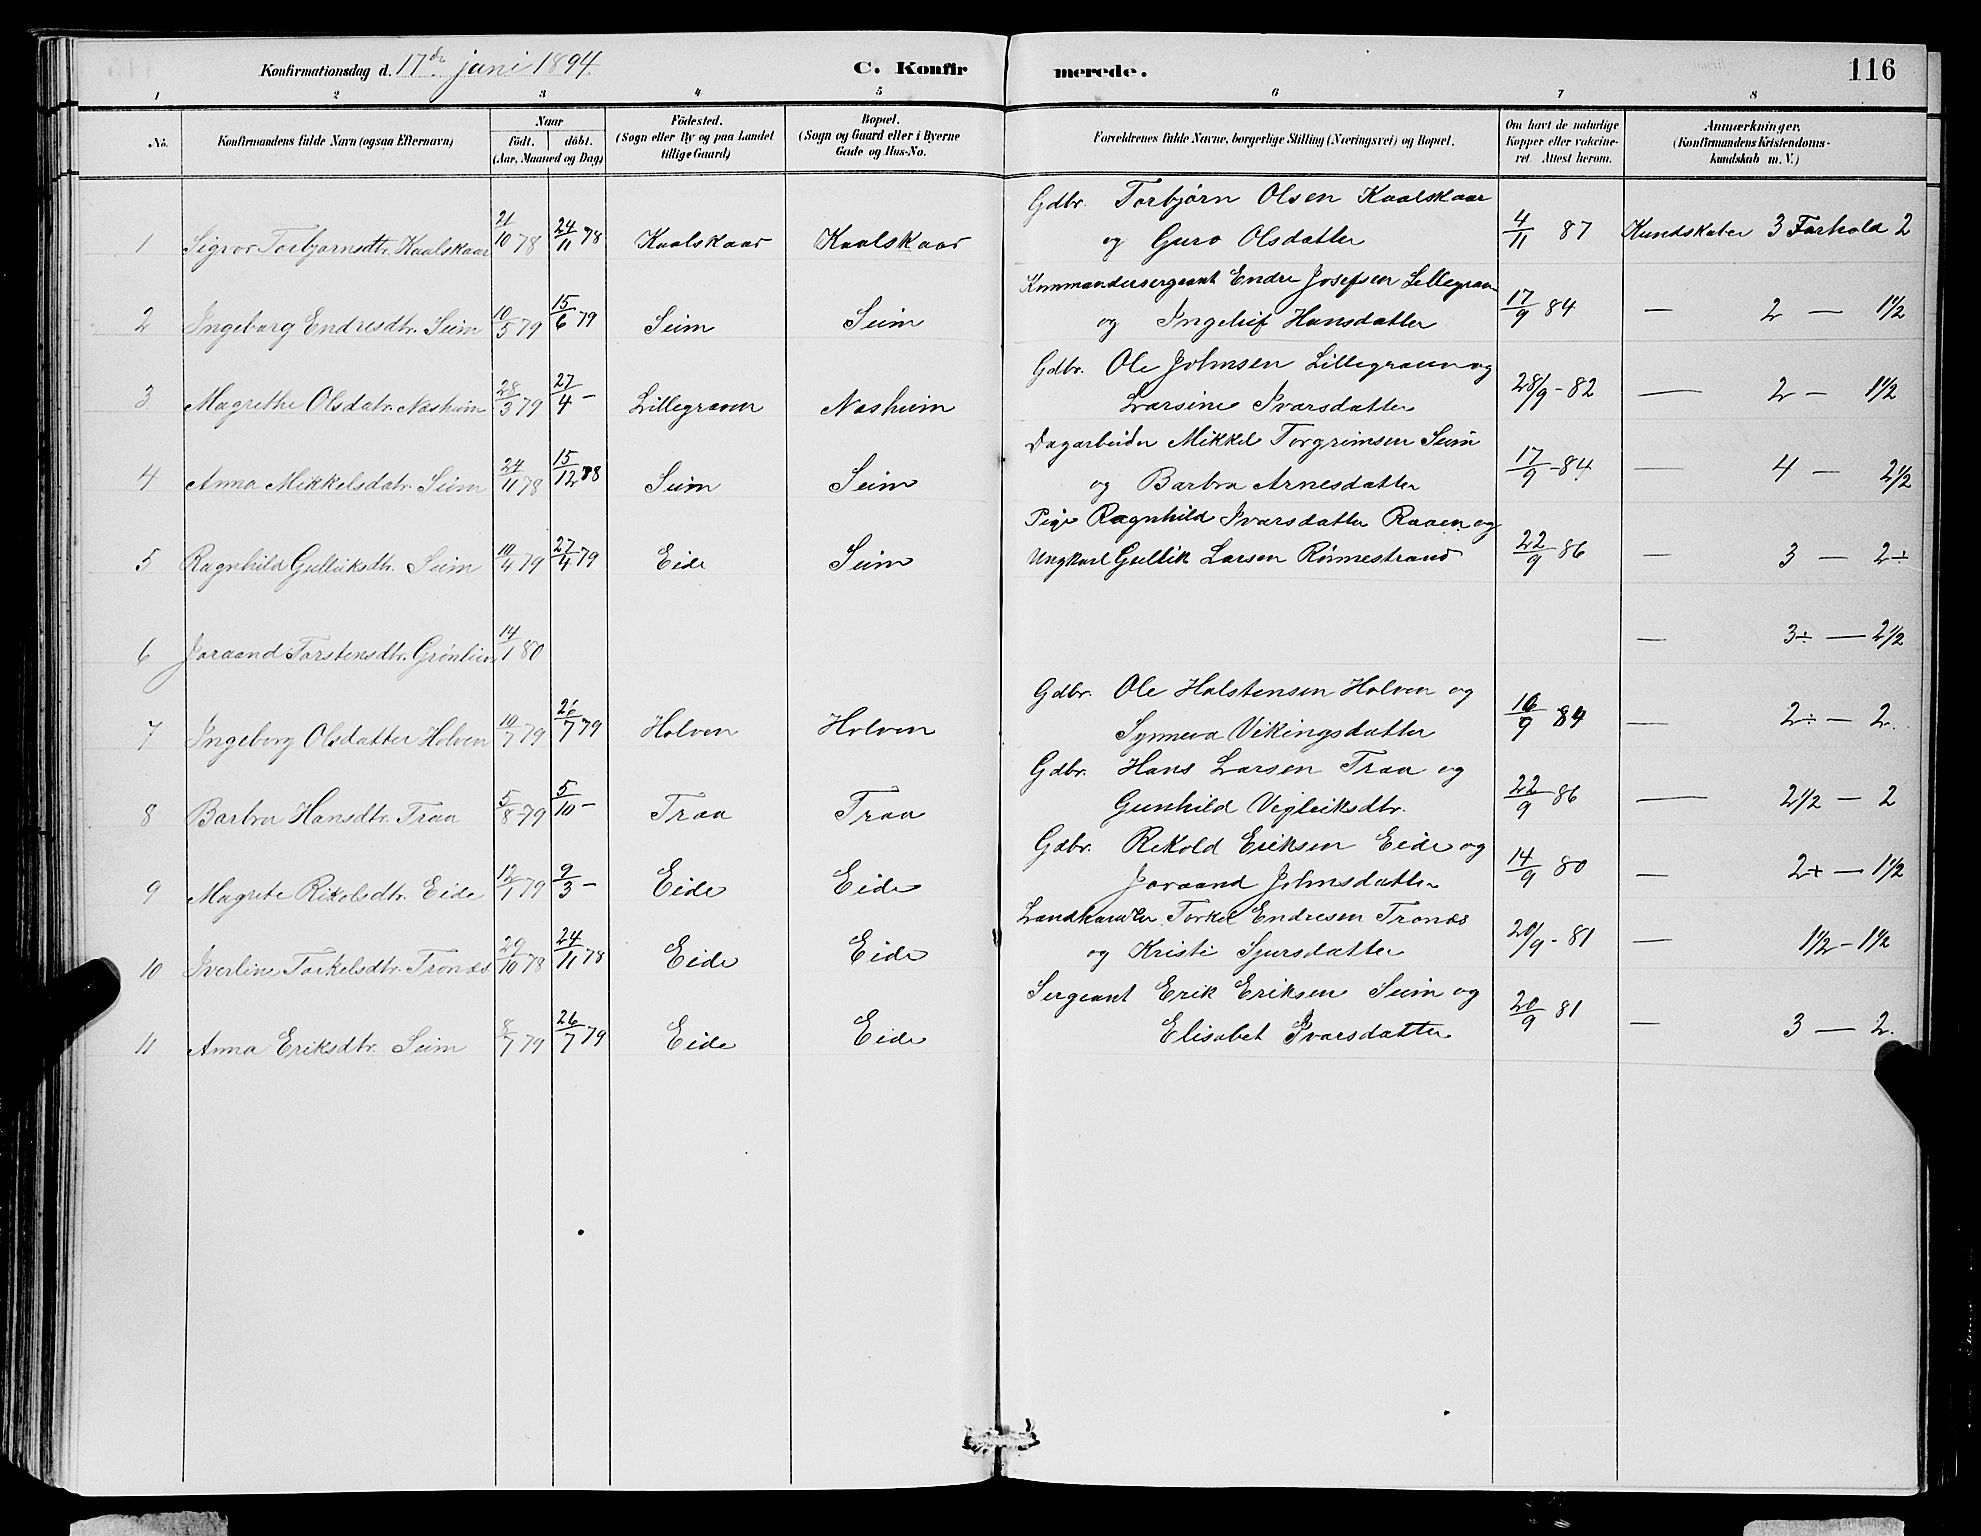 Konfirmationsdag d. 17de juni 1894. C. Konfirmerede. 116
1 2 3 4 5 6 7 8
No. Konfirmandens fulde Navn (ogsaa Efternavn) Naar födt. döbt. (Aar, Maaned og Dag) Födested. (Sogn eller By og paa Landet tillige Gaard) Bopæl. (Sogn og Gaard eller i Byerne Gade og Hus-No. Forældrenes fulde Navne, borgerlige Stilling (Næringsvei) og Bopæl. Om havt de naturlige Kopper eller vakcineret. Attest herom. Anmærkninger. (Konfirmandens Kristendomskundskab m. V.)
1 Sigvor Torbjørnsdtr. Kaalskaar 21/10 78 24/11 78 Kaalskaar Kaalskaar Gdbr. Torbjørn Olsen Kaalskaar og Guro Olsdatter 4/11 87 Kundskaber 3 Forhold 2
2 Ingeborg Endresdtr. Seim 10/5 79 15/6 79 Seim Seim Kommandersergeant Endre Josefsen Lillegraven og Ingeleif Hansdatter 17/9 84 — 2 — 1½
3 Magrethe Olsdatr. Nasheim 28/3 79 27/4 — Lillegraven Nasheim Gdbr. Ole Johnsen Lillegraven og Larsine Ivarsdatter 28/9 - 82 — 2 — 1½
4 Anna Mikkelsdatr. Seim 24/11 78 15/12 78 Seim Seim Dagarbeider Mikkel Torgrimsen Seim og Barbra Arnesdatter 17/9 - 84. — 4 — 2½
5 Ragnhild Gulleiksdtr. Seim 10/4 79 27/4 79 Eide Seim Pige Ragnhild Ivarsdatter Raaen og Ungkarl Gulleik Larsen Rönnestrand 22/9 86 — 3 — 2÷
6 Joraand Torstensdtr. Grönlien 14/1 80 — 3÷ — 2½
7 Ingeborg Olsdatter Holven 10/7 79 26/7 79 Holven Holven Gdbr. Ole Halstensen Holven og Synneva Vikingsdatter 16/9 84 — 2÷ — 2.
8 Barbra Hansdtr. Traa 5/8 79 5/10 — Traa Traa Gdbr. Hans Larsen Traa og Gunhild Vegleiksdtr. 22/9 86 — 2½ — 2
9 Magrete Rikolsdtr. Eide 12/1 79 9/3 — Eide Eide Gdbr. Rikold Eriksen Eide og Joraand Johnsdatter 14/9 80 — 2+ — 1½
10 Iverline Torkelsdtr. Tronæs 29/10 78 24/11 78 Eide Eide Landhandler Torkel Endresen Tronæs og Kristi Sjursdatter 20/9 - 81 — 1½ - 1½
11 Anna Eriksdtr. Seim 8/7 79 26/7 79 Eide Eide Sergeant Erik Eriksen Seim og Elisabet Ivarsdatter 20/9 81 — 3 — 2.